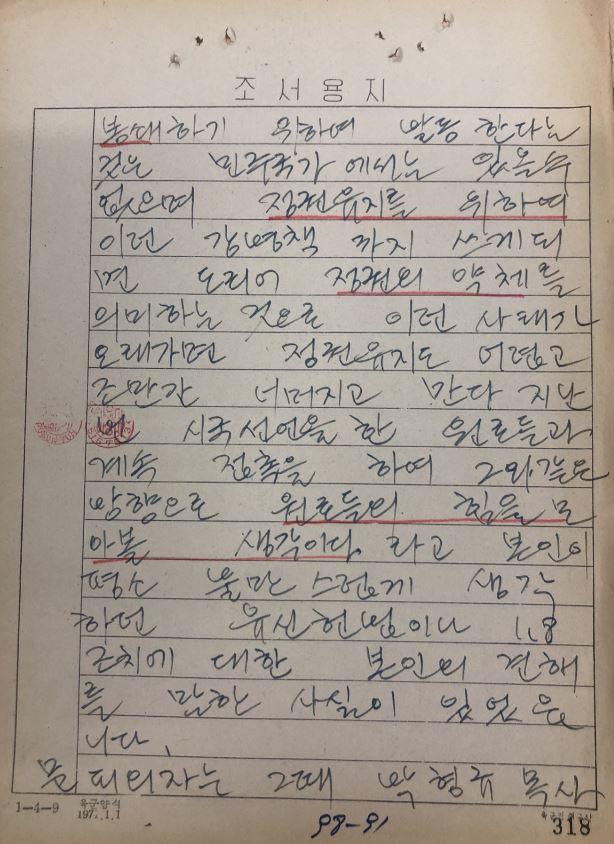 조서용지
봉쇄하기 위하여 발동 한다는
것은 민주국가 에서는 있을수
없으며 정권유지를 위하여
이런 강경책 까지 쓰게되
면 도리어 정권의 약체를
의미하는 것으로 이런 사태가
오래가면 정권유지도 어렵고
조만간 너머지고 만다 지난
시국선언을 한 원로들과
계속 접촉을 하여 그와같은
방향으로 원로들의 힘을 모
아볼 생각이다 라고 본인이
평소 불만 스럽게 생각
하던 유신헌법이나 1.8
조치에 대한 본인의 견해
를 말한 사실이 있었읍
니다.
문 피의자는 그때 박형규 목사
1-4-9
육군양식
318